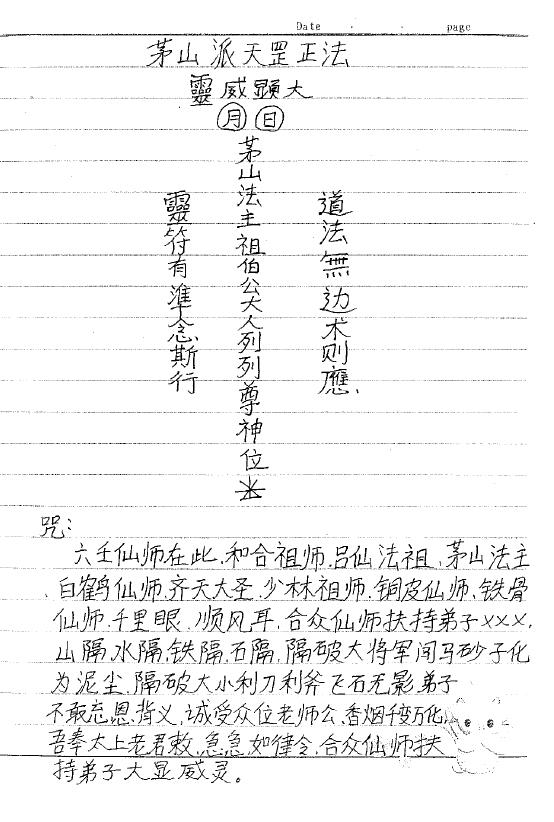 Date . . page
茅山派天罡正法
靈威顯大
月 日
道法無边术则應
茅山法主祖伯公大人列列尊神位
靈符有準念斯行
咒:
六壬仙师在此.和合祖师.吕仙法祖.茅山法主
.白鹤仙师.齐天大圣.少林祖师.铜皮仙师.铁骨
仙师.千里眼.顺风耳.合众仙师扶持弟子×××.
山隔.水隔.铁隔.石隔.隔破大将军闯马砂子化
为泥尘.隔破大小利刀利斧飞石无影弟子
不敢忘恩.背义.诚受众位老师公.香烟千变万化.
吾奉太上老君敕.急急如律令.合众仙师扶
持弟子大显威灵。